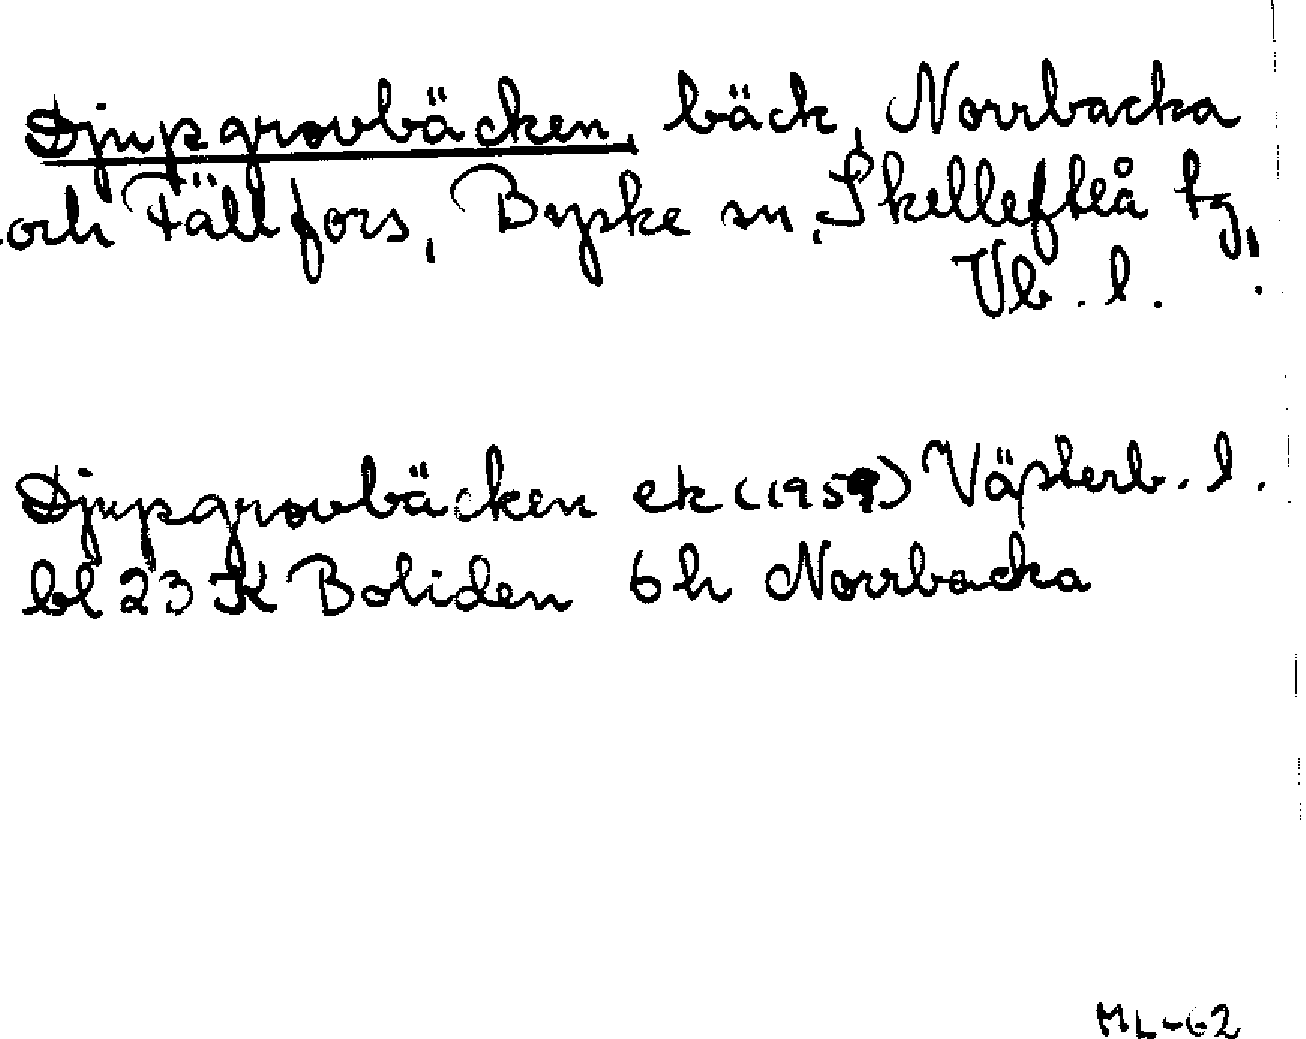 Djupgrovbäcken, bäck, Norrbacka
och Fällfors, Byske sn, Skellefteå tg,
Vb. l.
Djupgrovbäcken ek (1959) Västerb. l.
bl 23 K Boliden 6 h Norrbacka
ML-62